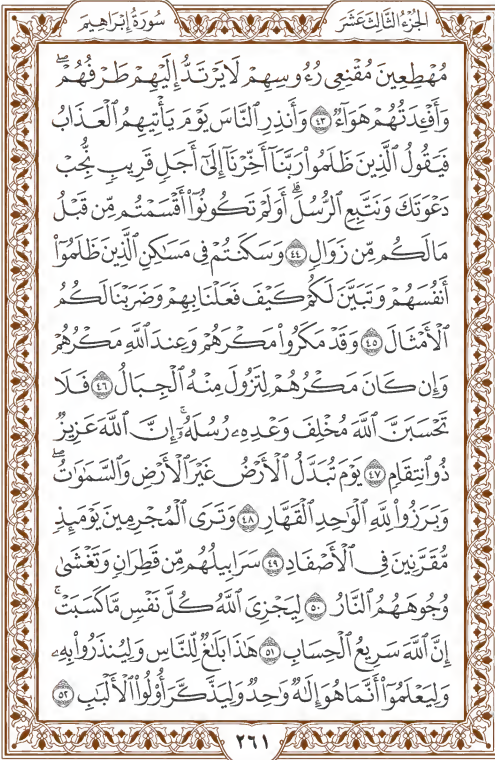 الجُزْءُ الثَّالِثَ عَشَرَ سُورَةُ إِبْرَاهِيمَ
مُهْطِعِينَ مُقْنِعِى رُءُوسِهِمْ لَا يَرْتَدُّ إِلَيْهِمْ طَرْفُهُمْ ۖ
وَأَفْـِٔدَتُهُمْ هَوَآءٌ ٤٣ وَأَنذِرِ ٱلنَّاسَ يَوْمَ يَأْتِيهِمُ ٱلْعَذَابُ
فَيَقُولُ ٱلَّذِينَ ظَلَمُوا۟ رَبَّنَآ أَخِّرْنَآ إِلَىٰٓ أَجَلٍ قَرِيبٍ نُّجِبْ
دَعْوَتَكَ وَنَتَّبِعِ ٱلرُّسُلَ ۗ أَوَلَمْ تَكُونُوٓا۟ أَقْسَمْتُم مِّن قَبْلُ
مَا لَكُم مِّن زَوَالٍ ٤٤ وَسَكَنتُمْ فِى مَسَـٰكِنِ ٱلَّذِينَ ظَلَمُوٓا۟
أَنفُسَهُمْ وَتَبَيَّنَ لَكُمْ كَيْفَ فَعَلْنَا بِهِمْ وَضَرَبْنَا لَكُمُ
ٱلْأَمْثَالَ ٤٥ وَقَدْ مَكَرُوا۟ مَكْرَهُمْ وَعِندَ ٱللَّهِ مَكْرُهُمْ
وَإِن كَانَ مَكْرُهُمْ لِتَزُولَ مِنْهُ ٱلْجِبَالُ ٤٦ فَلَا
تَحْسَبَنَّ ٱللَّهَ مُخْلِفَ وَعْدِهِۦ رُسُلَهُۥٓ ۗ إِنَّ ٱللَّهَ عَزِيزٌ
ذُو ٱنتِقَامٍ ٤٧ يَوْمَ تُبَدَّلُ ٱلْأَرْضُ غَيْرَ ٱلْأَرْضِ وَٱلسَّمَـٰوَٰتُ ۖ
وَبَرَزُوا۟ لِلَّهِ ٱلْوَٰحِدِ ٱلْقَهَّارِ ٤٨ وَتَرَى ٱلْمُجْرِمِينَ يَوْمَئِذٍ
مُّقَرَّنِينَ فِى ٱلْأَصْفَادِ ٤٩ سَرَابِيلُهُم مِّن قَطِرَانٍ وَتَغْشَىٰ
وُجُوهَهُمُ ٱلنَّارُ ٥٠ لِيَجْزِىَ ٱللَّهُ كُلَّ نَفْسٍ مَّا كَسَبَتْ ۚ
إِنَّ ٱللَّهَ سَرِيعُ ٱلْحِسَابِ ٥١ هَـٰذَا بَلَـٰغٌ لِّلنَّاسِ وَلِيُنذَرُوا۟ بِهِۦ
وَلِيَعْلَمُوٓا۟ أَنَّمَا هُوَ إِلَـٰهٌ وَٰحِدٌ وَلِيَذَّكَّرَ أُو۟لُوا۟ ٱلْأَلْبَـٰبِ ٥٢
٢٦١